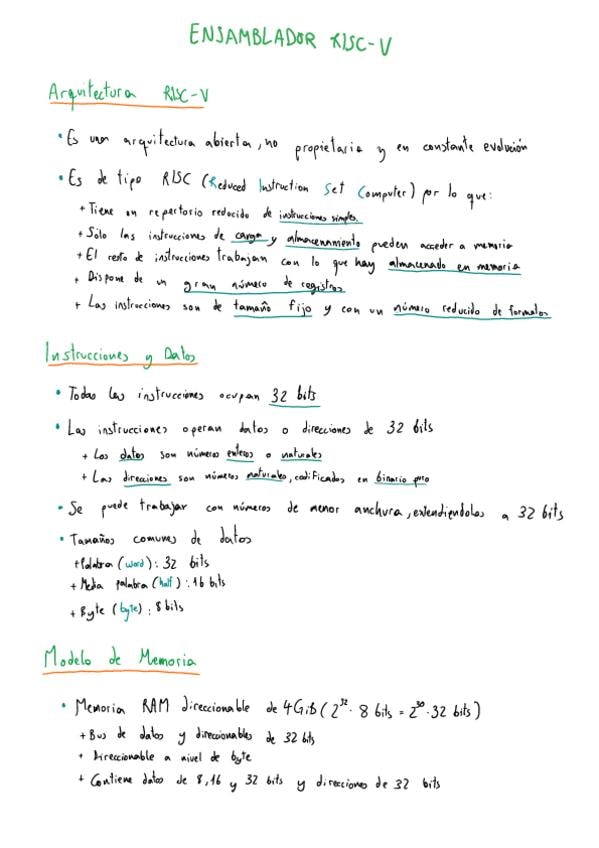 ENSAMBLADOR RISC-V
Arquitectura RISC-V
• Es una arquitectura abierta, no propietaria y en constante evolución
• Es de tipo RISC (Reduced Instruction Set Computer) por lo que:
+ Tiene un repertorio reducido de instrucciones simples.
+ Sólo las instrucciones de carga y almacenamiento pueden acceder a memoria
+ El resto de instrucciones trabajan con lo que hay almacenado en memoria
+ Dispone de un gran número de registros
+ Las instrucciones son de tamaño fijo y con un número reducido de formatos
Instrucciones y Datos
• Todas las instrucciones ocupan 32 bits
• Las instrucciones operan datos o direcciones de 32 bits
+ Los datos son números enteros o naturales
+ Las direcciones son números naturales, codificados en binario puro
• Se puede trabajar con números de menor anchura, extendiéndolos a 32 bits
• Tamaños comunes de datos
+ Palabra (word): 32 bits
+ Media palabra (half): 16 bits
+ Byte (byte): 8 bits
Modelo de Memoria
• Memoria RAM direccionable de 4GiB (2^32 · 8 bits = 2^30 · 32 bits)
+ Bus de datos y direccionables de 32 bits
+ Direccionable a nivel de byte
+ Contiene datos de 8, 16 y 32 bits y direcciones de 32 bits